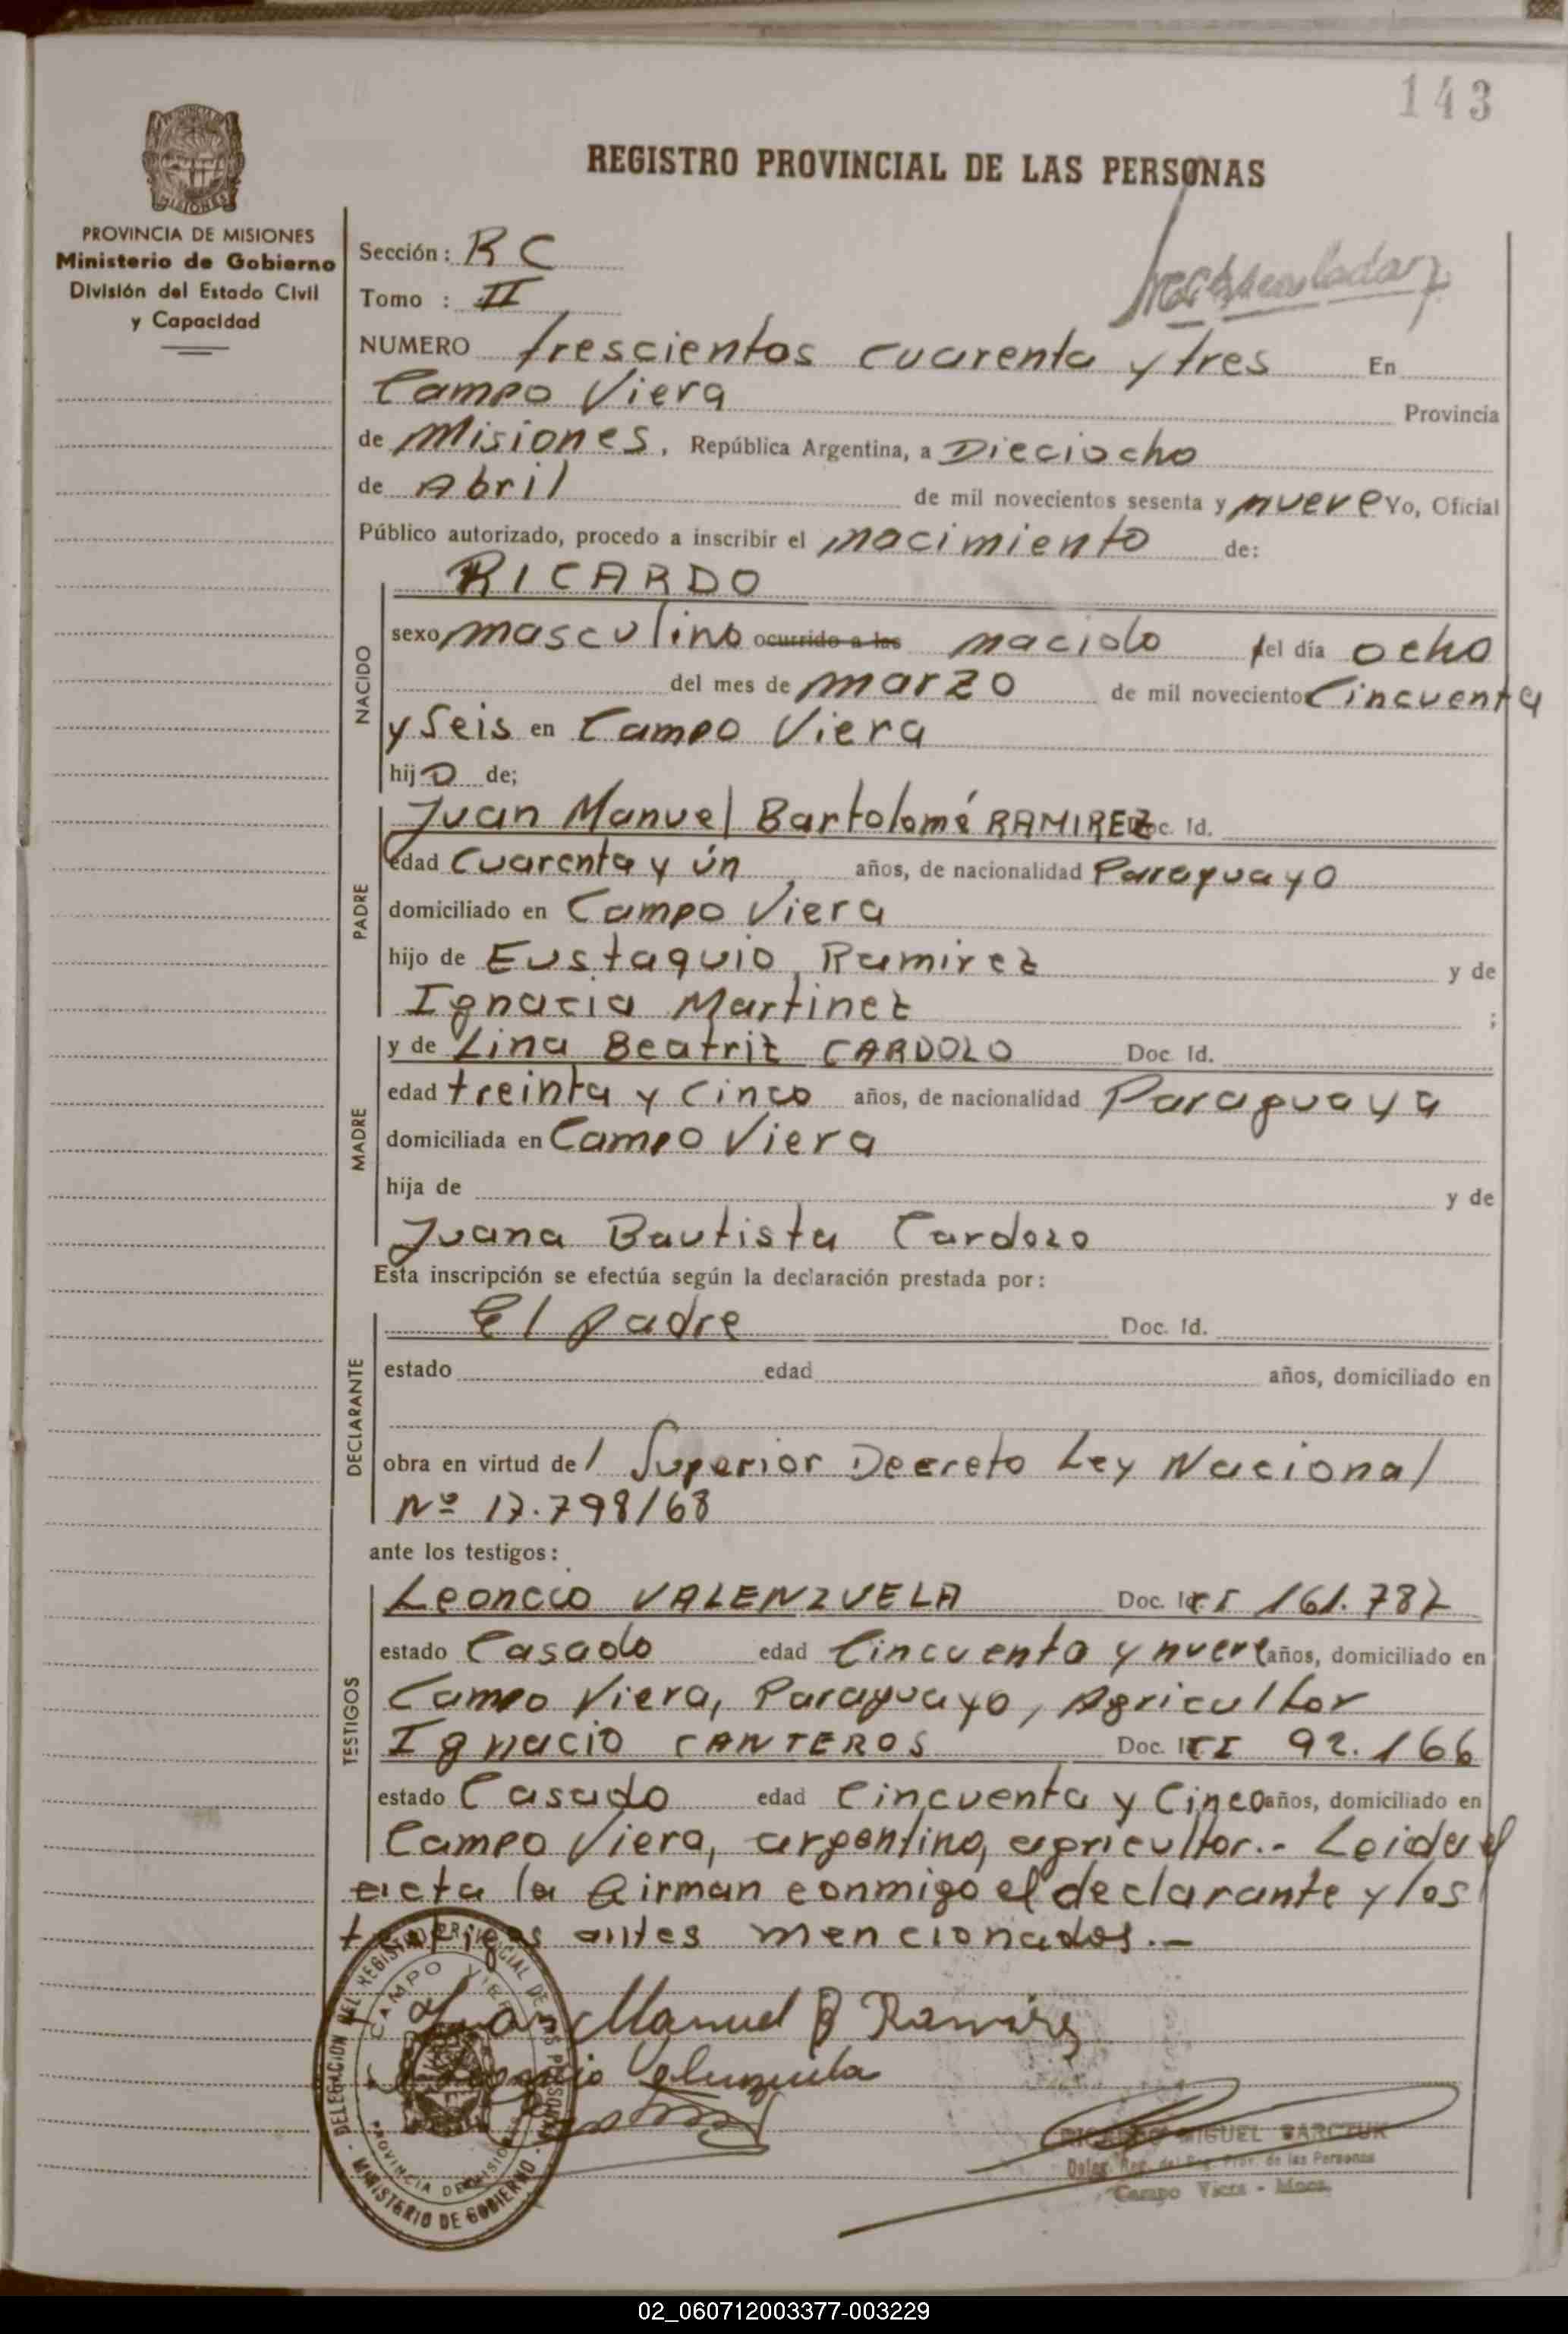 143
REGISTRO PROVINCIAL DE LAS PERSONAS
PROVINCIA DE MISIONES
Ministerio de Gobierno
División del Estado Civil
y Capacidad
Sección: RC
Tomo : II
NUMERO trescientos cuarenta y tres En
Campo Viera Provincia
de Misiones, República Argentina, a Dieciocho
de Abril de mil novecientos sesenta y nueve Yo, Oficial
Público autorizado, procedo a inscribir el nacimiento de:
NACIDO
RICARDO
sexo masculino ocurrido a las nacido del día ocho
del mes de marzo de mil novecientos Cincuenta
y Seis en Campo Viera
hijo de;
PADRE
Juan Manuel Bartolomé RAMIREZ Doc. Id.
edad Cuarenta y ún años, de nacionalidad Paraguayo
domiciliado en Campo Viera
hijo de Eustaquio Ramirez y de
Ignacia Martinez ;
MADRE
y de Lina Beatriz CARDOZO Doc. Id.
edad treinta y cinco años, de nacionalidad Paraguaya
domiciliada en Campo Viera
hija de y de
Juana Bautista Cardozo
Esta inscripción se efectúa según la declaración prestada por:
DECLARANTE
El padre Doc. Id.
estado edad años, domiciliado en
obra en virtud del Superior Decreto Ley Nacional
Nº 17.798/68
ante los testigos:
TESTIGOS
Leoncio VALENZUELA Doc. Id CI 161.787
estado Casado edad Cincuenta y nueve años, domiciliado en
Campo Viera, Paraguayo, Agricultor
Ignacio CANTEROS Doc. I CI 92.166
estado Casado edad Cincuenta y Cinco años, domiciliado en
Campo Viera, argentino, agricultor.- Leida el
acta la firman conmigo el declarante y los
testigos antes mencionados.-
DELEGACION DEL REGISTRO PROVINCIAL DE LAS PERSONAS
CAMPO VIERA
PROVINCIA DE MISIONES
MINISTERIO DE GOBIERNO
Juan Manuel B Ramirez
Leoncio Valenzuela
RICARDO MIGUEL BARCZUK
Deleg. Rep. del Reg. Prov. de las Personas
Campo Viera - Mnes.
02_060712003377-003229